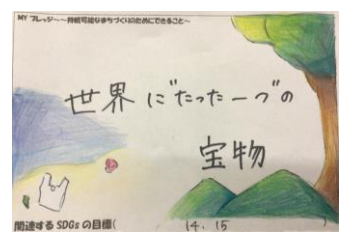 MY プレッジ～～持続可能なまちづくりのためにできること～
世界に"たった一つ"の
宝物
関連する SDGs の目標( 14. 15 )